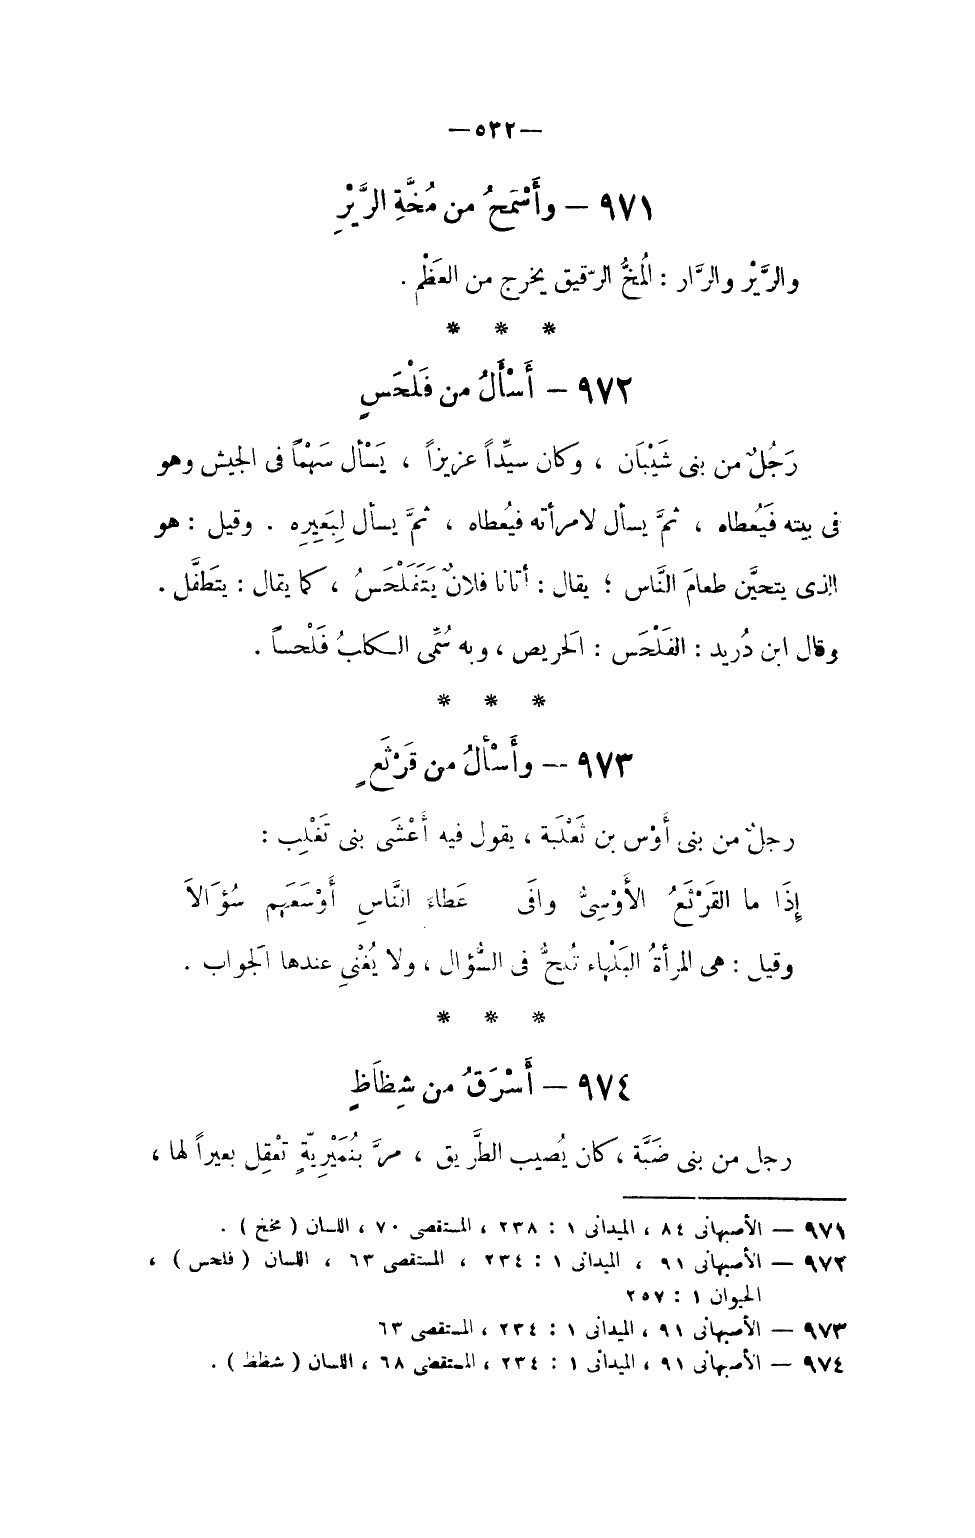 —٥٣٢—
٩٧١ – وأَسْمَحُ من مُخَّةِ الرَّيْرِ
والرَّيْر والرَّار : المُخُّ الرّقيق يخرج من العَظْم .
* * *
٩٧٢ – أَسْأَلُ من فَلْحَسٍ
رَجُلٌ من بنى شَيْبَان ، وكان سيِّداً عزيزاً ، يَسْأل سَهْماً فى الجيش وهو
فى بيته فَيُعطاه ، ثمَّ يسأل لامرأته فيُعطاه ، ثمَّ يسأل لِبَعِيرِه . وقيل : هو
الذى يتحيَّن طعامَ النَّاس ؛ يقال : أتانا فلانٌ يَتَفَلْحَسُ ، كما يقال : يتطَفَّل .
وقال ابن دُريد : الفَلْحَس : الحَريص ، وبه سُمِّى الكلبُ فَلْحساً .
* * *
٩٧٣ – وأَسْألُ من قَرْثَعٍ
رجلٌ من بنى أَوْس بن ثَعْلَبة ، يقول فيه أَعْشَى بنى تَغْلِب :
إِذَا ما القَرْثَعُ الأَوْسِىُّ وافَى عَطاءَ النَّاسِ أَوْسَعَهم سُؤَالاَ
وقيل : هى المرأةُ البَلْهاء تُلحُّ فى السُّؤال ، ولا يُغْنِى عندها الجَواب .
* * *
٩٧٤ – أَسْرَقُ من شِظَاظٍ
رجل من بنى ضَبَّة ، كان يُصيب الطَّريق ، مرَّ بنُمَيْرِيّةٍ تعْقِل بعيراً لها ،
٩٧١ – الأصبهانى ٨٤ ، الميدانى ١ : ٢٣٨ ، المستقصى ٧٠ ، اللسان ( مخخ ) .
٩٧٢ – الأصبهانى ٩١ ، الميدانى ١ : ٢٣٤ ، المستقصى ٦٣ ، اللسان ( فلحس ) ،
الحيوان ١ : ٢٥٧
٩٧٣ – الأصبهانى ٩١ ، الميدانى ١ : ٢٣٤ ، المستقصى ٦٣
٩٧٤ – الأصبهانى ٩١ ، الميدانى ١ : ٢٣٤ ، المستقصى ٦٨ ، اللسان ( شظظ ) .